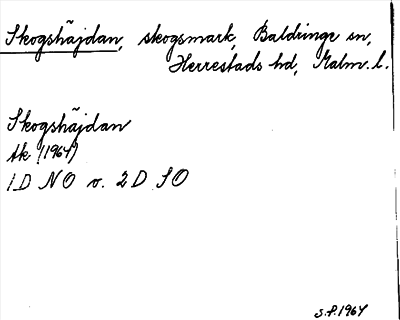 Skogshäjdan, skogsmark, Baldringe sn,
Herrestads hd, Malm. l.
Skogshäjdan
tk (1964)
1D NO o. 2D SO
S.P. 1964